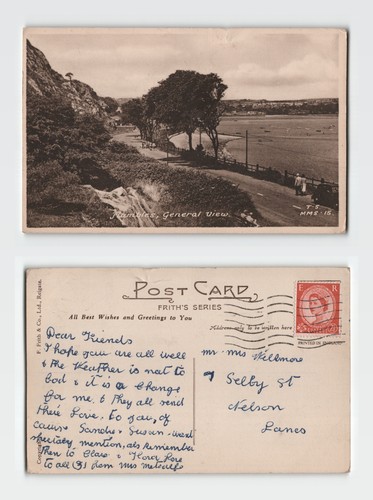 Mumbles, General View.
MMB.15.
POST CARD
FRITH'S SERIES
All Best Wishes and Greetings to You
Address only to be written here
PRINTED IN
F. Frith & Co., Ltd., Reigate.
E R
Dear Friends
I hope you are all well
& the Weather is not to
bad & it is a Change
for me. & They all send
their Love. to you, of
Sandra & Susan.
mention, als remember
Then to Clara &
to all from mrs metcalfe
mr mrs Wellmore
7 Selby St
Nelson
Lancs